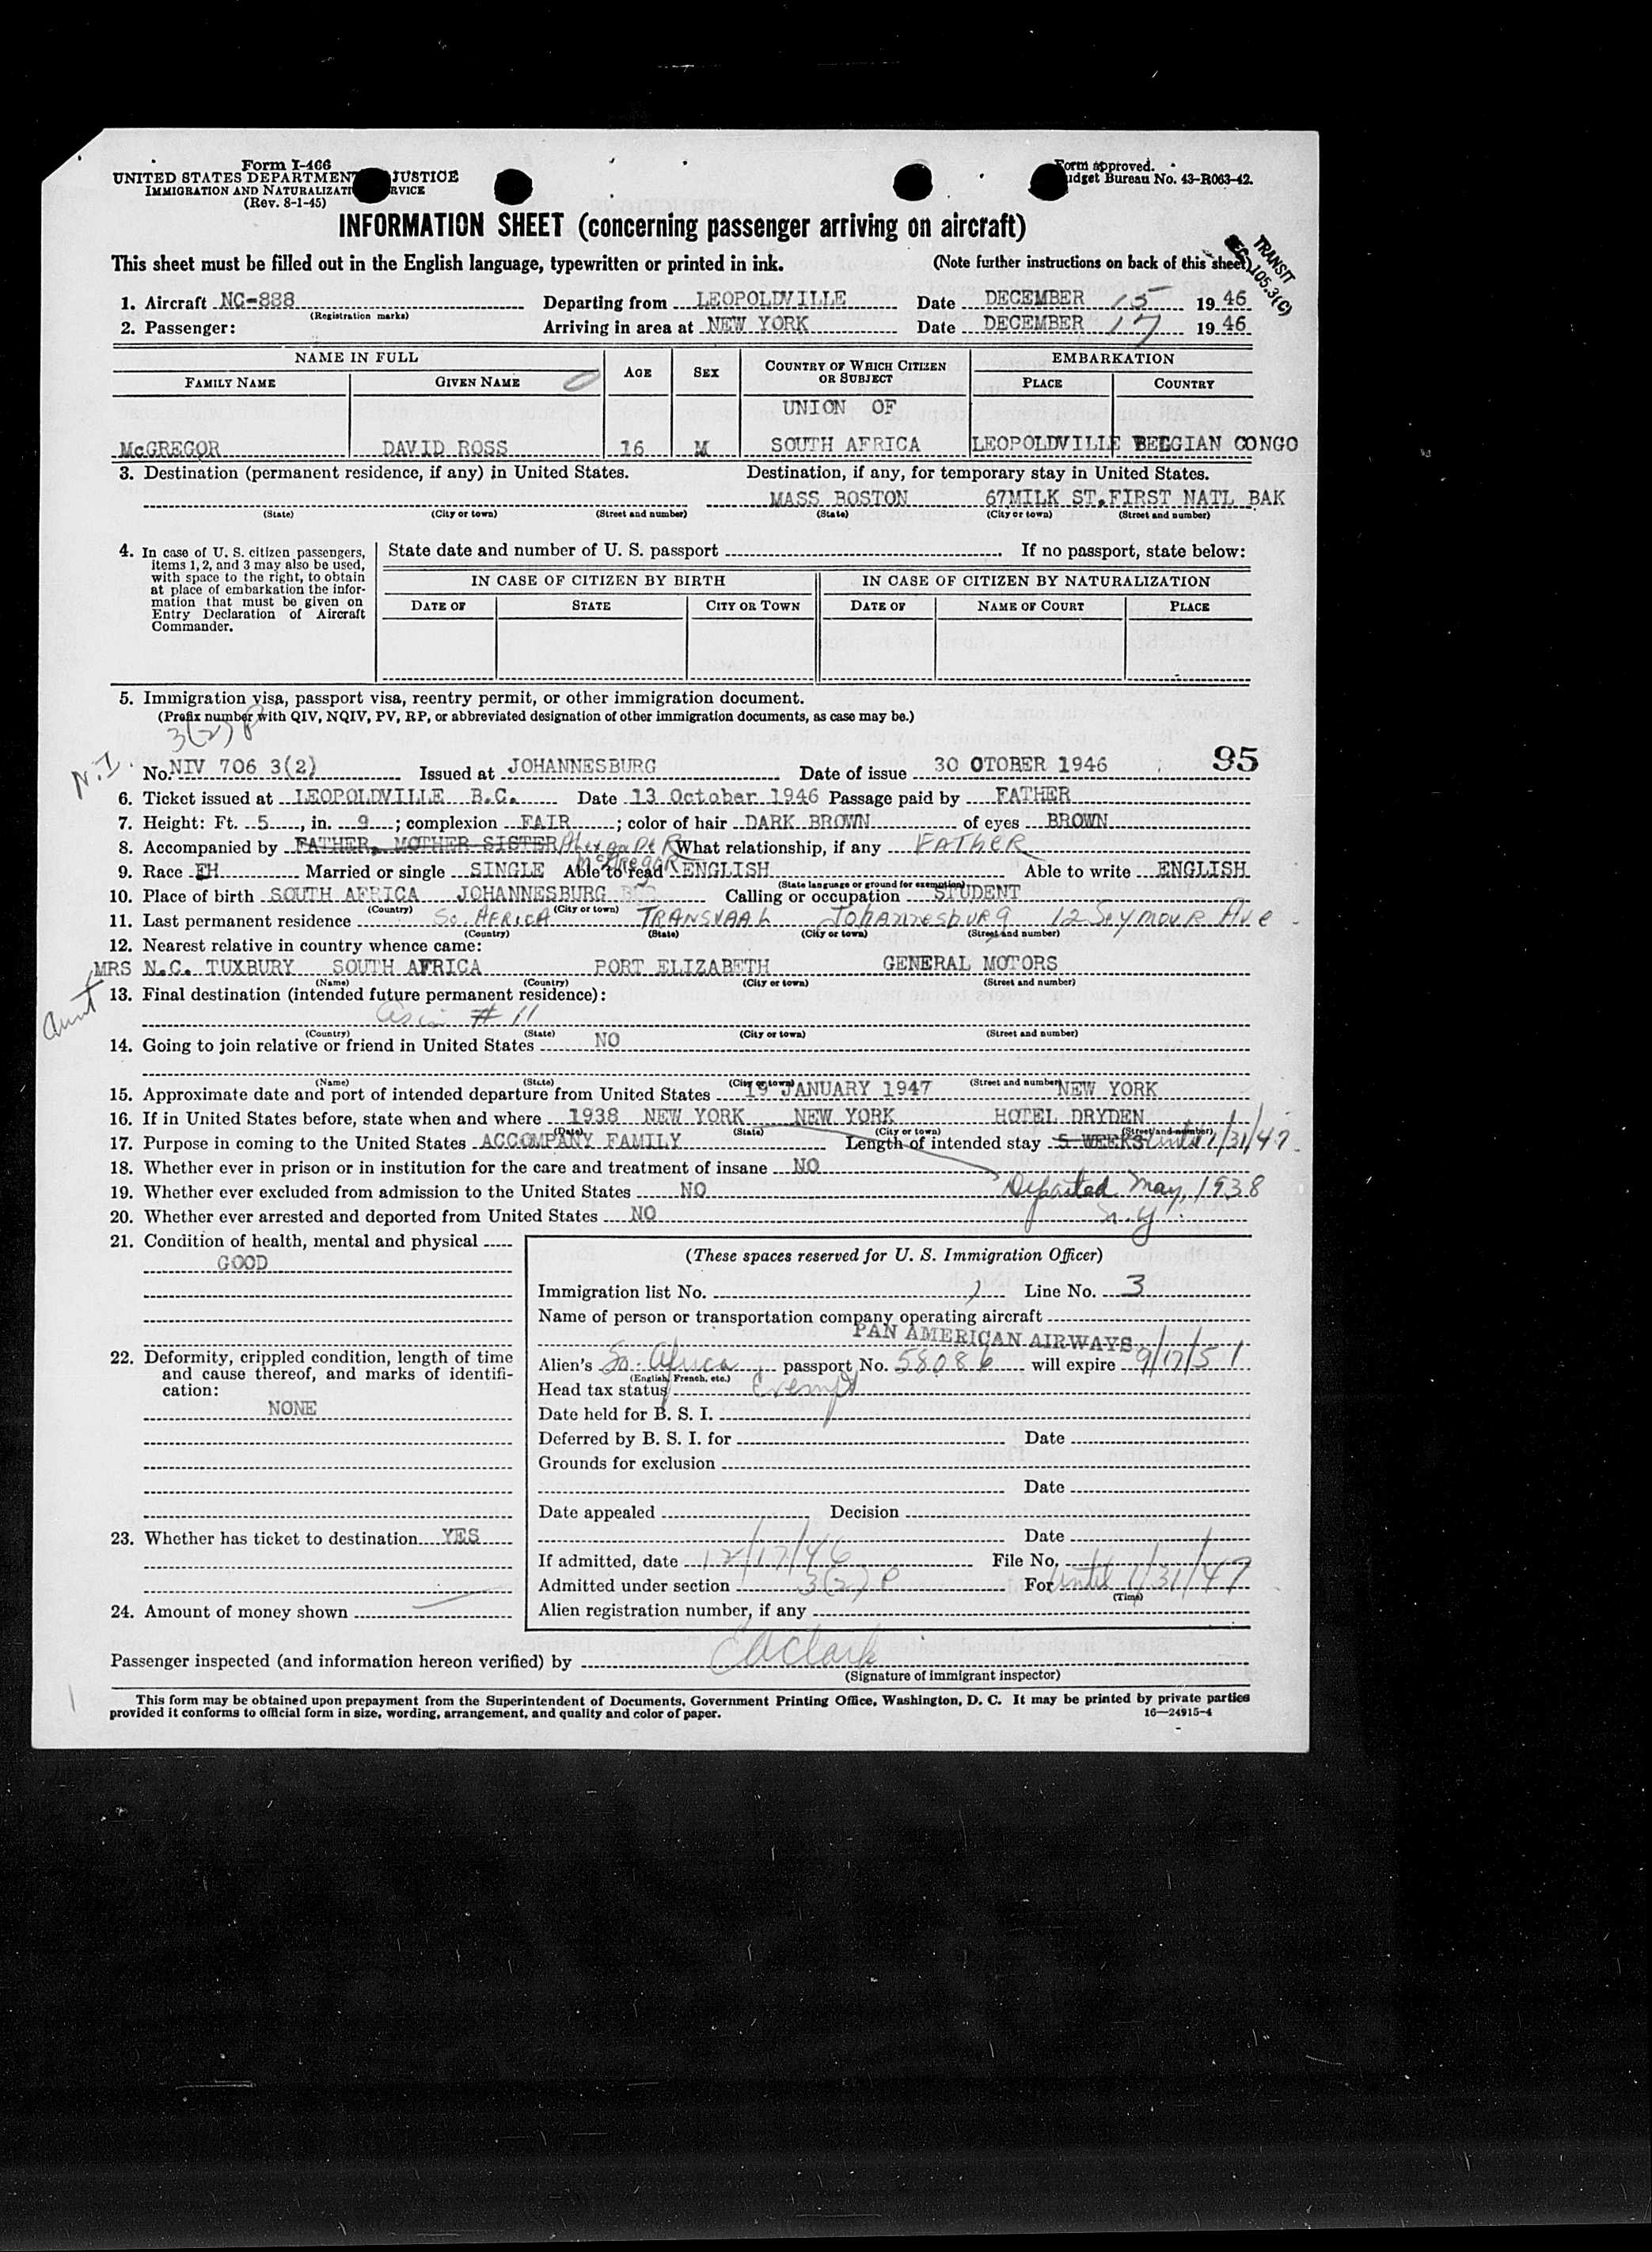 Form I-466
UNITED STATES DEPARTMENT JUSTICE
IMMIGRATION AND NATURALIZATI RVICE
(Rev. 8-1-45)
Form approved.
udget Bureau No. 43-R063-42.
INFORMATION SHEET (concerning passenger arriving on aircraft)
This sheet must be filled out in the English language, typewritten or printed in ink. (Note further instructions on back of this sheet)
TRANSIT
SEC 105.3(C)
1. Aircraft NC-888 Departing from LEOPOLDVILLE Date DECEMBER 15 1946
(Registration marks)
2. Passenger: Arriving in area at NEW YORK Date DECEMBER 17 1946
NAME IN FULL AGE SEX COUNTRY OF WHICH CITIZEN OR SUBJECT EMBARKATION
FAMILY NAME GIVEN NAME PLACE COUNTRY
UNION OF
McGREGOR DAVID ROSS 16 M SOUTH AFRICA LEOPOLDVILLE BELGIAN CONGO
3. Destination (permanent residence, if any) in United States. Destination, if any, for temporary stay in United States.
MASS BOSTON 67MILK ST.FIRST NATL BAK
(State) (City or town) (Street and number) (State) (City or town) (Street and number)
4. In case of U. S. citizen passengers, items 1, 2, and 3 may also be used, with space to the right, to obtain at place of embarkation the information that must be given on Entry Declaration of Aircraft Commander.
State date and number of U. S. passport If no passport, state below:
IN CASE OF CITIZEN BY BIRTH IN CASE OF CITIZEN BY NATURALIZATION
DATE OF STATE CITY OR TOWN DATE OF NAME OF COURT PLACE
5. Immigration visa, passport visa, reentry permit, or other immigration document.
(Prefix number with QIV, NQIV, PV, RP, or abbreviated designation of other immigration documents, as case may be.)
3(2) P
N.I.
No. NIV 706 3(2) Issued at JOHANNESBURG Date of issue 30 OTOBER 1946 95
6. Ticket issued at LEOPOLDVILLE B.C. Date 13 October 1946 Passage paid by FATHER
7. Height: Ft. 5, in. 9; complexion FAIR; color of hair DARK BROWN of eyes BROWN
8. Accompanied by FATHER, MOTHER SISTER McGregor What relationship, if any FATHER
9. Race EH Married or single SINGLE Able to read ENGLISH Able to write ENGLISH
(State language or ground for exemption)
10. Place of birth SOUTH AFRICA JOHANNESBURG Calling or occupation STUDENT
(Country) (City or town)
11. Last permanent residence So. AFRICA TRANSVAAL Johannesburg 12 Seymour Ave
(Country) (State) (City or town) (Street and number)
12. Nearest relative in country whence came:
MRS N.C. TUXBURY SOUTH AFRICA PORT ELIZABETH GENERAL MOTORS
(Name) (Country) (City or town) (Street and number)
aunt
13. Final destination (intended future permanent residence):
as in # 11
(Country) (State) (City or town) (Street and number)
14. Going to join relative or friend in United States NO
(Name) (State) (City or town) (Street and number)
15. Approximate date and port of intended departure from United States 19 JANUARY 1947 NEW YORK
16. If in United States before, state when and where 1938 NEW YORK NEW YORK HOTEL DRYDEN
(Date) (State) (City or town) (Street and number)
17. Purpose in coming to the United States ACCOMPANY FAMILY Length of intended stay 5 WEEKS until 1/31/47
18. Whether ever in prison or in institution for the care and treatment of insane NO
19. Whether ever excluded from admission to the United States NO Departed May, 1938
20. Whether ever arrested and deported from United States NO N.Y.
21. Condition of health, mental and physical
GOOD
22. Deformity, crippled condition, length of time and cause thereof, and marks of identification:
NONE
23. Whether has ticket to destination YES
24. Amount of money shown
(These spaces reserved for U. S. Immigration Officer)
Immigration list No. 1 Line No. 3
Name of person or transportation company operating aircraft
PAN AMERICAN AIRWAYS
Alien's So. Africa passport No. 58086 will expire 9/17/51
(English, French, etc.)
Head tax status Exempt
Date held for B. S. I.
Deferred by B. S. I. for Date
Grounds for exclusion
Date
Date appealed Decision
Date
If admitted, date 12/17/46 File No.
Admitted under section 3(2) P For until 1/31/47
(Time)
Alien registration number, if any
Passenger inspected (and information hereon verified) by EAClark
(Signature of immigrant inspector)
This form may be obtained upon prepayment from the Superintendent of Documents, Government Printing Office, Washington, D. C. It may be printed by private parties
provided it conforms to official form in size, wording, arrangement, and quality and color of paper. 16—24915-4